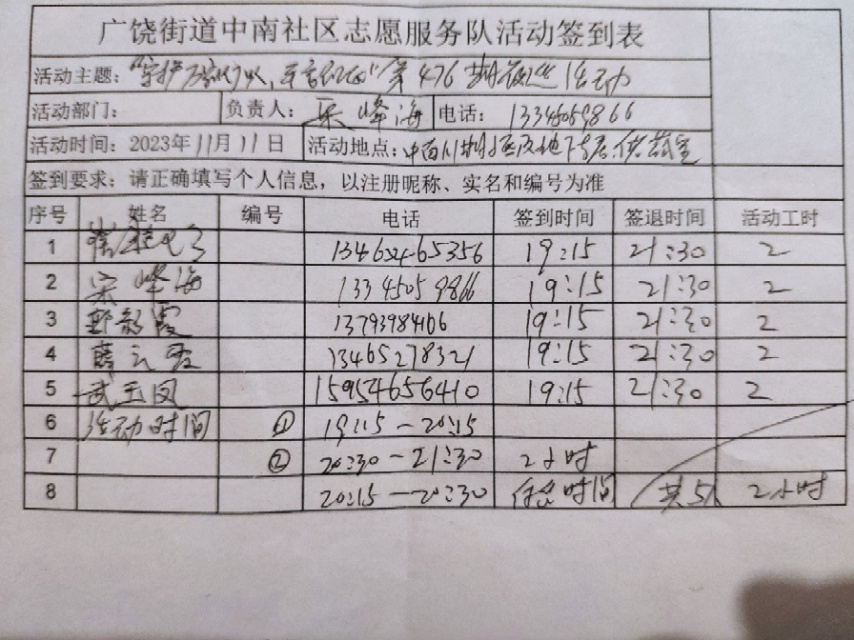 广饶街道中南社区志愿服务队活动签到表
活动主题："守护万家灯火， 第476期夜巡活动
活动部门： 负责人：宋峰海 电话：13345059866
活动时间：2023年11月11日 活动地点：中南
签到要求：请正确填写个人信息，以注册昵称、实名和编号为准
序号 姓名 编号 电话 签到时间 签退时间 活动工时
1 13465465356 19:15 21:30 2
2 宋峰海 13345059866 19:15 21:30 2
3 郭彩霞 13793984106 19:15 21:30 2
4 薛云霞 13465278321 19:15 21:30 2
5 武玉凤 15954656410 19:15 21:30 2
6 活动时间 ① 19:15-20:15
7 ② 20:30-21:30 2小时
8 20:15-20:30 休息时间 共5人 2小时